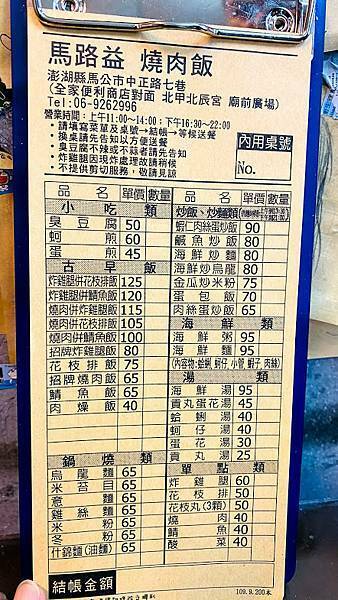 馬路益 燒肉飯
澎湖縣馬公市中正路七巷
(全家便利商店對面 北甲北辰宮 廟前廣場)
Tel:06-9262996
營業時間:上午11:00~14:00;下午16:30~22:00
・請填寫菜單及桌號→結帳→等候送餐
・換桌請先告知以方便送餐
・臭豆腐不辣或不蒜者請先告知
・炸雞腿因現炸處理故請稍候
・不提供剪切服務,敬請見諒
內用桌號
No.
品名 單價 數量
小吃類
臭豆腐 50
蚵煎 60
蛋煎 45
古早飯
炸雞腿併花枝排飯 125
炸雞腿併鯖魚飯 120
燒肉併炸雞腿飯 115
燒肉併花枝排飯 105
燒肉併鯖魚飯 100
招牌炸雞腿飯 80
花枝排飯 75
招牌燒肉飯 65
鯖魚飯 65
肉燥飯 40
鍋燒類
烏龍麵 65
米苔目 65
意麵 65
雞絲麵 65
米粉 65
冬粉 65
什錦麵(油麵) 65
結帳金額
品名 單價 數量
炒飯、炒麵類
蝦仁肉絲蛋炒飯 80
鹹魚炒飯 80
海鮮炒麵 80
海鮮炒烏龍 80
金瓜炒米粉 75
蛋包飯 70
肉絲蛋炒飯 65
海鮮類
海鮮粥 95
海鮮麵 95
(內容物:蛤蜊, 蚵仔, 小管, 蝦子, 肉絲)
湯類
海鮮湯 95
貢丸蛋花湯 45
蛤蜊湯 40
蚵仔湯 40
蛋花湯 30
貢丸湯 25
單點類
炸雞腿 60
花枝排 50
花枝丸(3顆) 50
燒肉 40
鯖魚 40
酸菜 40
109.9.200本